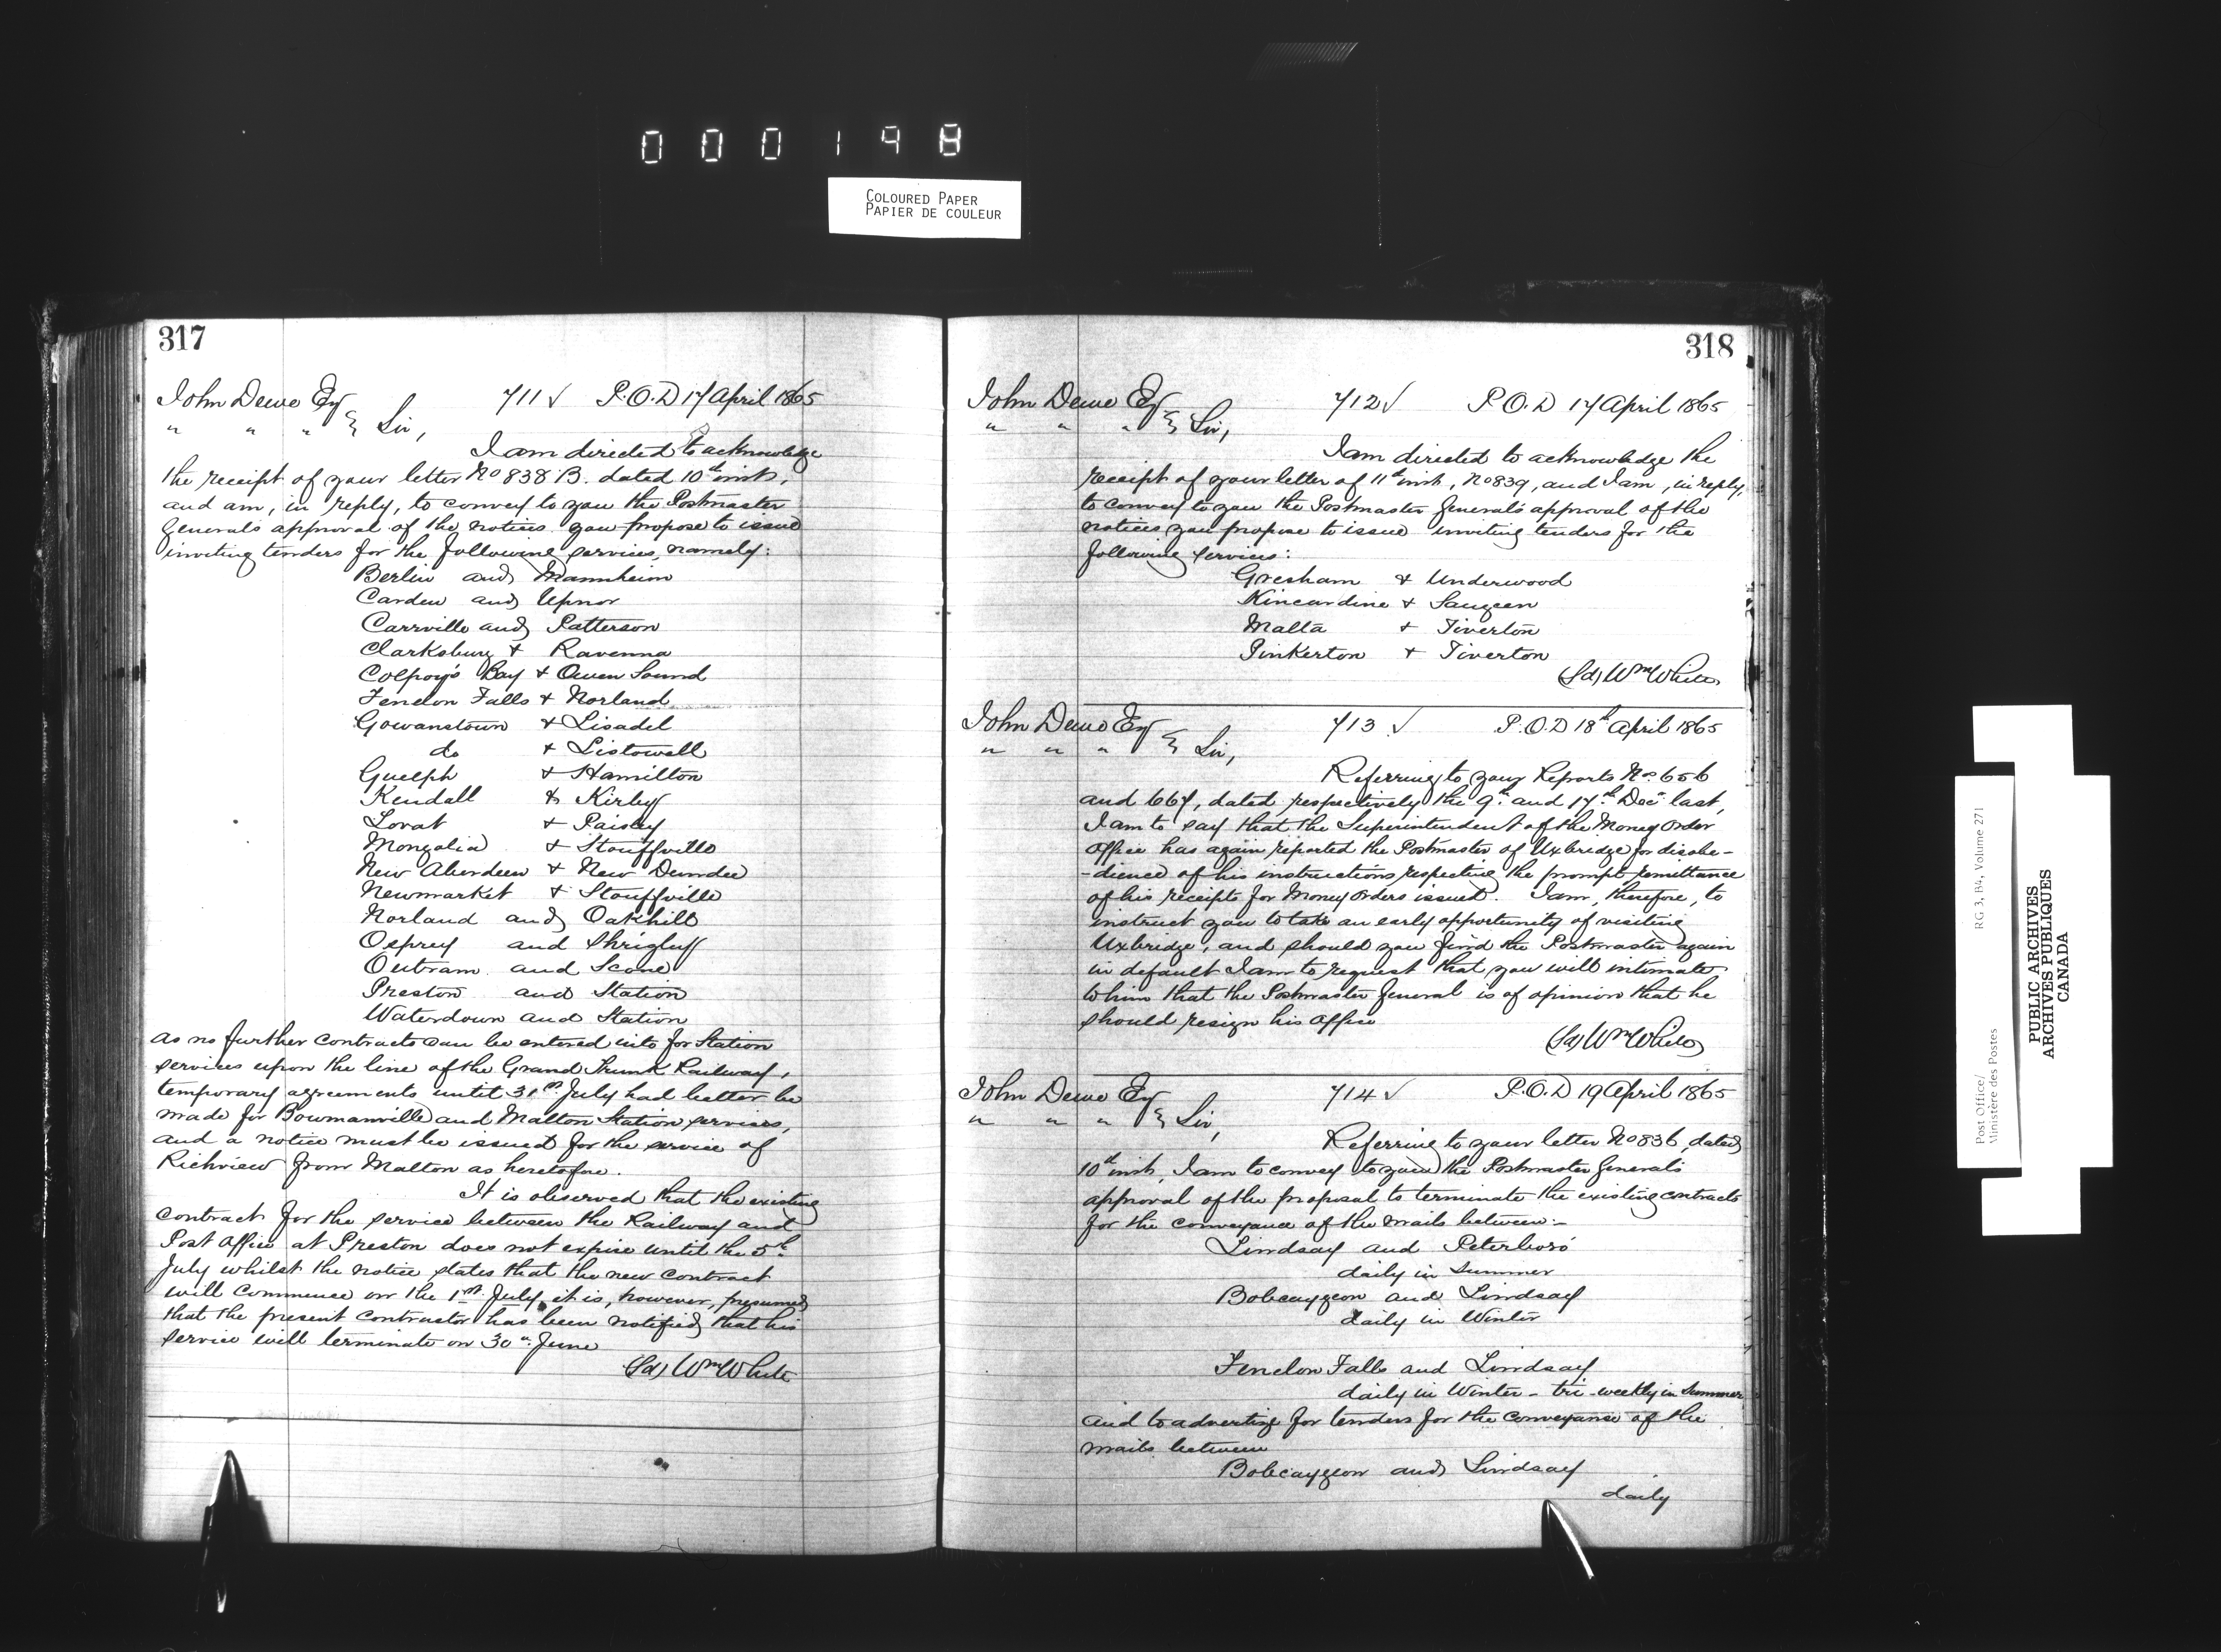 000198
COLOURED PAPER
PAPIER DE COULEUR
317
John Dewe Esq 711 ✓ P.O.D 17 April 1865
" " " } Sir,
I am directed to acknowledge
the receipt of your letter No 838 B. dated 10th inst,
and am, in reply, to convey to you the Postmaster
Generals approval of the notices you propose to issue
inviting tenders for the following services, namely:
Berlin and Mannheim
Carden and Upnor
Carrville and Patterson
Clarksburg & Ravenna
Colpoy's Bay & Owen Sound
Fenelon Falls & Norland
Gowanstown & Lisadel
do & Listowell
Guelph & Hamilton
Kendall & Kirby
Lovat & Paisley
Mongolia & Stouffville
New Aberdeen & New Dundee
Newmarket & Stouffville
Norland and Oakhill
Osprey and Shrigley
Outram and Scone
Preston and Station
Waterdown and Station
as no further contracts can be entered into for Station
services upon the line of the Grand Trunk Railway,
temporary agreements until 31st July had better be
made for Bowmanville and Malton Station services,
and a notice must be issued for the service of
Richview from Malton as heretofore.
It is observed that the existing
contract for the service between the Railway and
Post Office at Preston does not expire until the 5th
July whilst the notice states that the new contract
will commence on the 1st July, it is, however, presumed
that the present contractor has been notified that his
service will terminate on 30th June
(Sd) Wm White
318
John Dewe Esq 712 ✓ P.O.D 17 April 1865
" " " } Sir,
I am directed to acknowledge the
receipt of your letter of 11th inst, No 839, and I am, in reply,
to convey to you the Postmaster General's approval of the
notices you propose to issue inviting tenders for the
following services:
Gresham & Underwood
Kincardine & Saugeen
Malta & Tiverton
Pinkerton & Tiverton
(Sd) Wm White
John Dewe Esq 713 ✓ P.O.D 18th April 1865
" " " } Sir,
Referring to your Reports Nos 656
and 667, dated respectively the 9th and 17th Decr last,
I am to say that the Superintendent of the Money Order
Office has again reported the Postmaster of Uxbridge for disobe-
-dience of his instructions respecting the prompt remittance
of his receipts for Money Orders issued. I am, therefore, to
instruct you to take an early opportunity of visiting
Uxbridge, and should you find the Postmaster again
in default I am to request that you will intimate
to him that the Postmaster General is of opinion that he
should resign his office
(Sd) Wm White
John Dewe Esq 714 ✓ P.O.D 19 April 1865
" " " } Sir,
Referring to your letter No 836, dated
10th inst, I am to convey to you the Postmaster Generals
approval of the proposal to terminate the existing contracts
for the conveyance of the mails between:-
Lindsay and Peterboro'
daily in Summer
Bobcaygeon and Lindsay
daily in Winter
Fenelon Falls and Lindsay
daily in Winter - tri-weekly in Summer
and to advertize for tenders for the conveyance of the
mails between
Bobcaygeon and Lindsay
daily
Post Office/ RG 3, B4, Volume 271
Ministère des Postes
PUBLIC ARCHIVES
ARCHIVES PUBLIQUES
CANADA